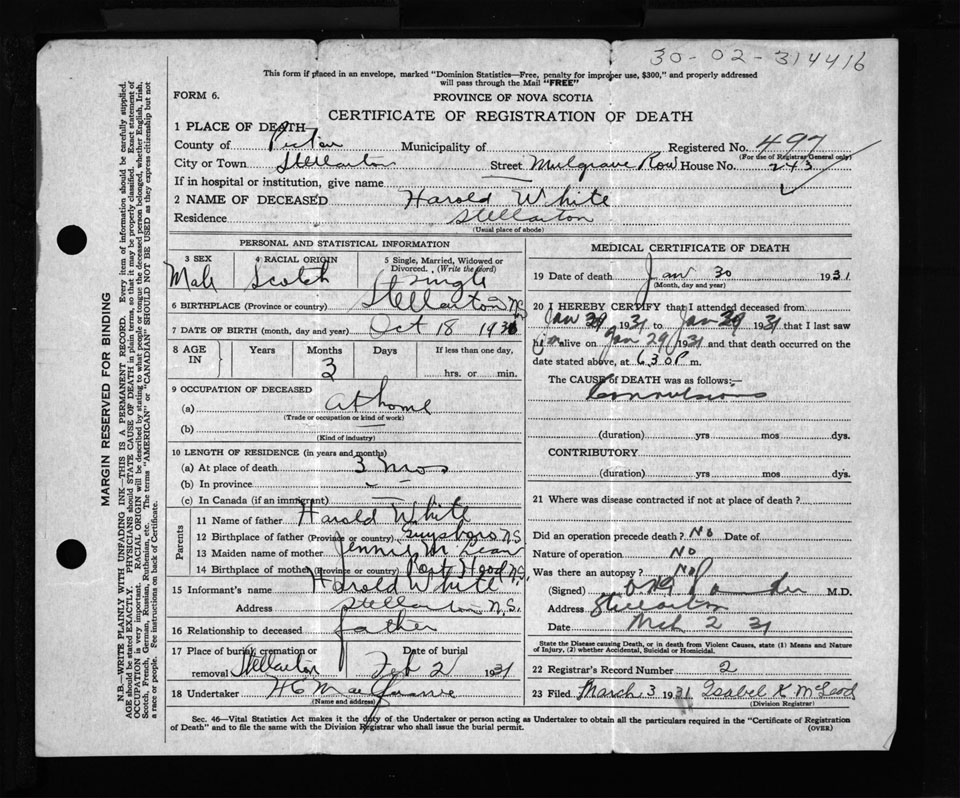 30-02-314416
This form if placed in an envelope, marked "Dominion Statistics—Free, penalty for improper use, $300," and properly addressed
will pass through the Mail "FREE"
FORM 6.
PROVINCE OF NOVA SCOTIA
CERTIFICATE OF REGISTRATION OF DEATH
1 PLACE OF DEATH—
County of Pictou Municipality of Registered No. 497
(For use of Registrar General only)
City or Town Stellarton Street Mulgrave Row House No. 243
If in hospital or institution, give name
2 NAME OF DECEASED Harold White
Residence Stellarton
(Usual place of abode)
PERSONAL AND STATISTICAL INFORMATION
3 SEX 4 RACIAL ORIGIN 5 Single, Married, Widowed or
Divorced. (Write the word)
Male Scotch Single
6 BIRTHPLACE (Province or country) Stellarton N.S.
7 DATE OF BIRTH (month, day and year) Oct 18 1930
8 AGE IN Years Months Days If less than one day,
3 hrs. or min.
9 OCCUPATION OF DECEASED
(a) At home
(Trade or occupation or kind of work)
(b)
(Kind of industry)
10 LENGTH OF RESIDENCE (in years and months)
(a) At place of death 3 mos
(b) In province
(c) In Canada (if an immigrant)
Parents
11 Name of father Harold White
12 Birthplace of father (Province or country) Guysboro N.S.
13 Maiden name of mother Jennie McLean
14 Birthplace of mother (Province or country) Port Hood N.S.
15 Informant's name Harold White
Address Stellarton N.S.
16 Relationship to deceased father
17 Place of burial, cremation or Date of burial
removal Stellarton Feb 2 1931
18 Undertaker
(Name and address)
MEDICAL CERTIFICATE OF DEATH
19 Date of death Jan 30 1931
(Month, day and year)
20 I HEREBY CERTIFY that I attended deceased from
Jan 29 1931 to Jan 29 1931 that I last saw
him alive on Jan 29 1931 and that death occurred on the
date stated above, at 6.30 P m.
The CAUSE of DEATH was as follows:—
Convulsions
(duration) yrs mos dys.
CONTRIBUTORY
(duration) yrs mos dys.
21 Where was disease contracted if not at place of death?
Did an operation precede death? No Date of
Nature of operation No
Was there an autopsy? No
(Signed) M.D.
Address Stellarton
Date Mch 2 31
State the Disease causing Death, or in death from Violent Causes, state (1) Means and Nature
of Injury, (2) whether Accidental, Suicidal or Homicidal.
22 Registrar's Record Number 2
23 Filed March 3 1931 Isabel K McLeod
(Division Registrar)
Sec. 46—Vital Statistics Act makes it the duty of the Undertaker or person acting as Undertaker to obtain all the particulars required in the "Certificate of Registration
of Death" and to file the same with the Division Registrar who shall issue the burial permit. (OVER)
MARGIN RESERVED FOR BINDING
N.B.—WRITE PLAINLY WITH UNFADING INK—THIS IS A PERMANENT RECORD. Every item of information should be carefully supplied.
AGE should be stated EXACTLY. PHYSICIANS should STATE CAUSE OF DEATH in plain terms, so that it may be properly classified. Exact statement of
OCCUPATION is very important. RACIAL ORIGIN will be described by stating to what people or tongue the deceased person belonged, whether English, Irish,
Scotch, French, German, Russian, Ruthenian, etc. The terms "AMERICAN" or "CANADIAN" SHOULD NOT BE USED as they express citizenship but not
a race or people. See instructions on back of Certificate.